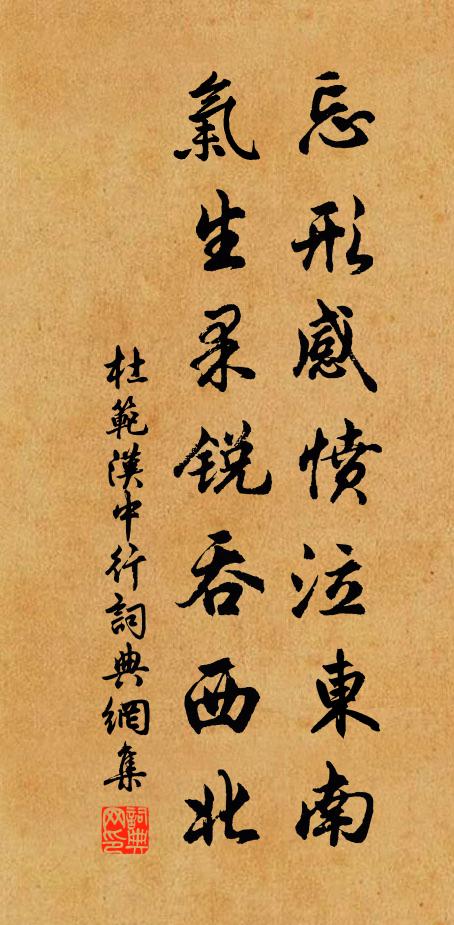 忘形感憤泣東南
氣生果銳吞西北
杜範漢中行詞典網集
詞典網印